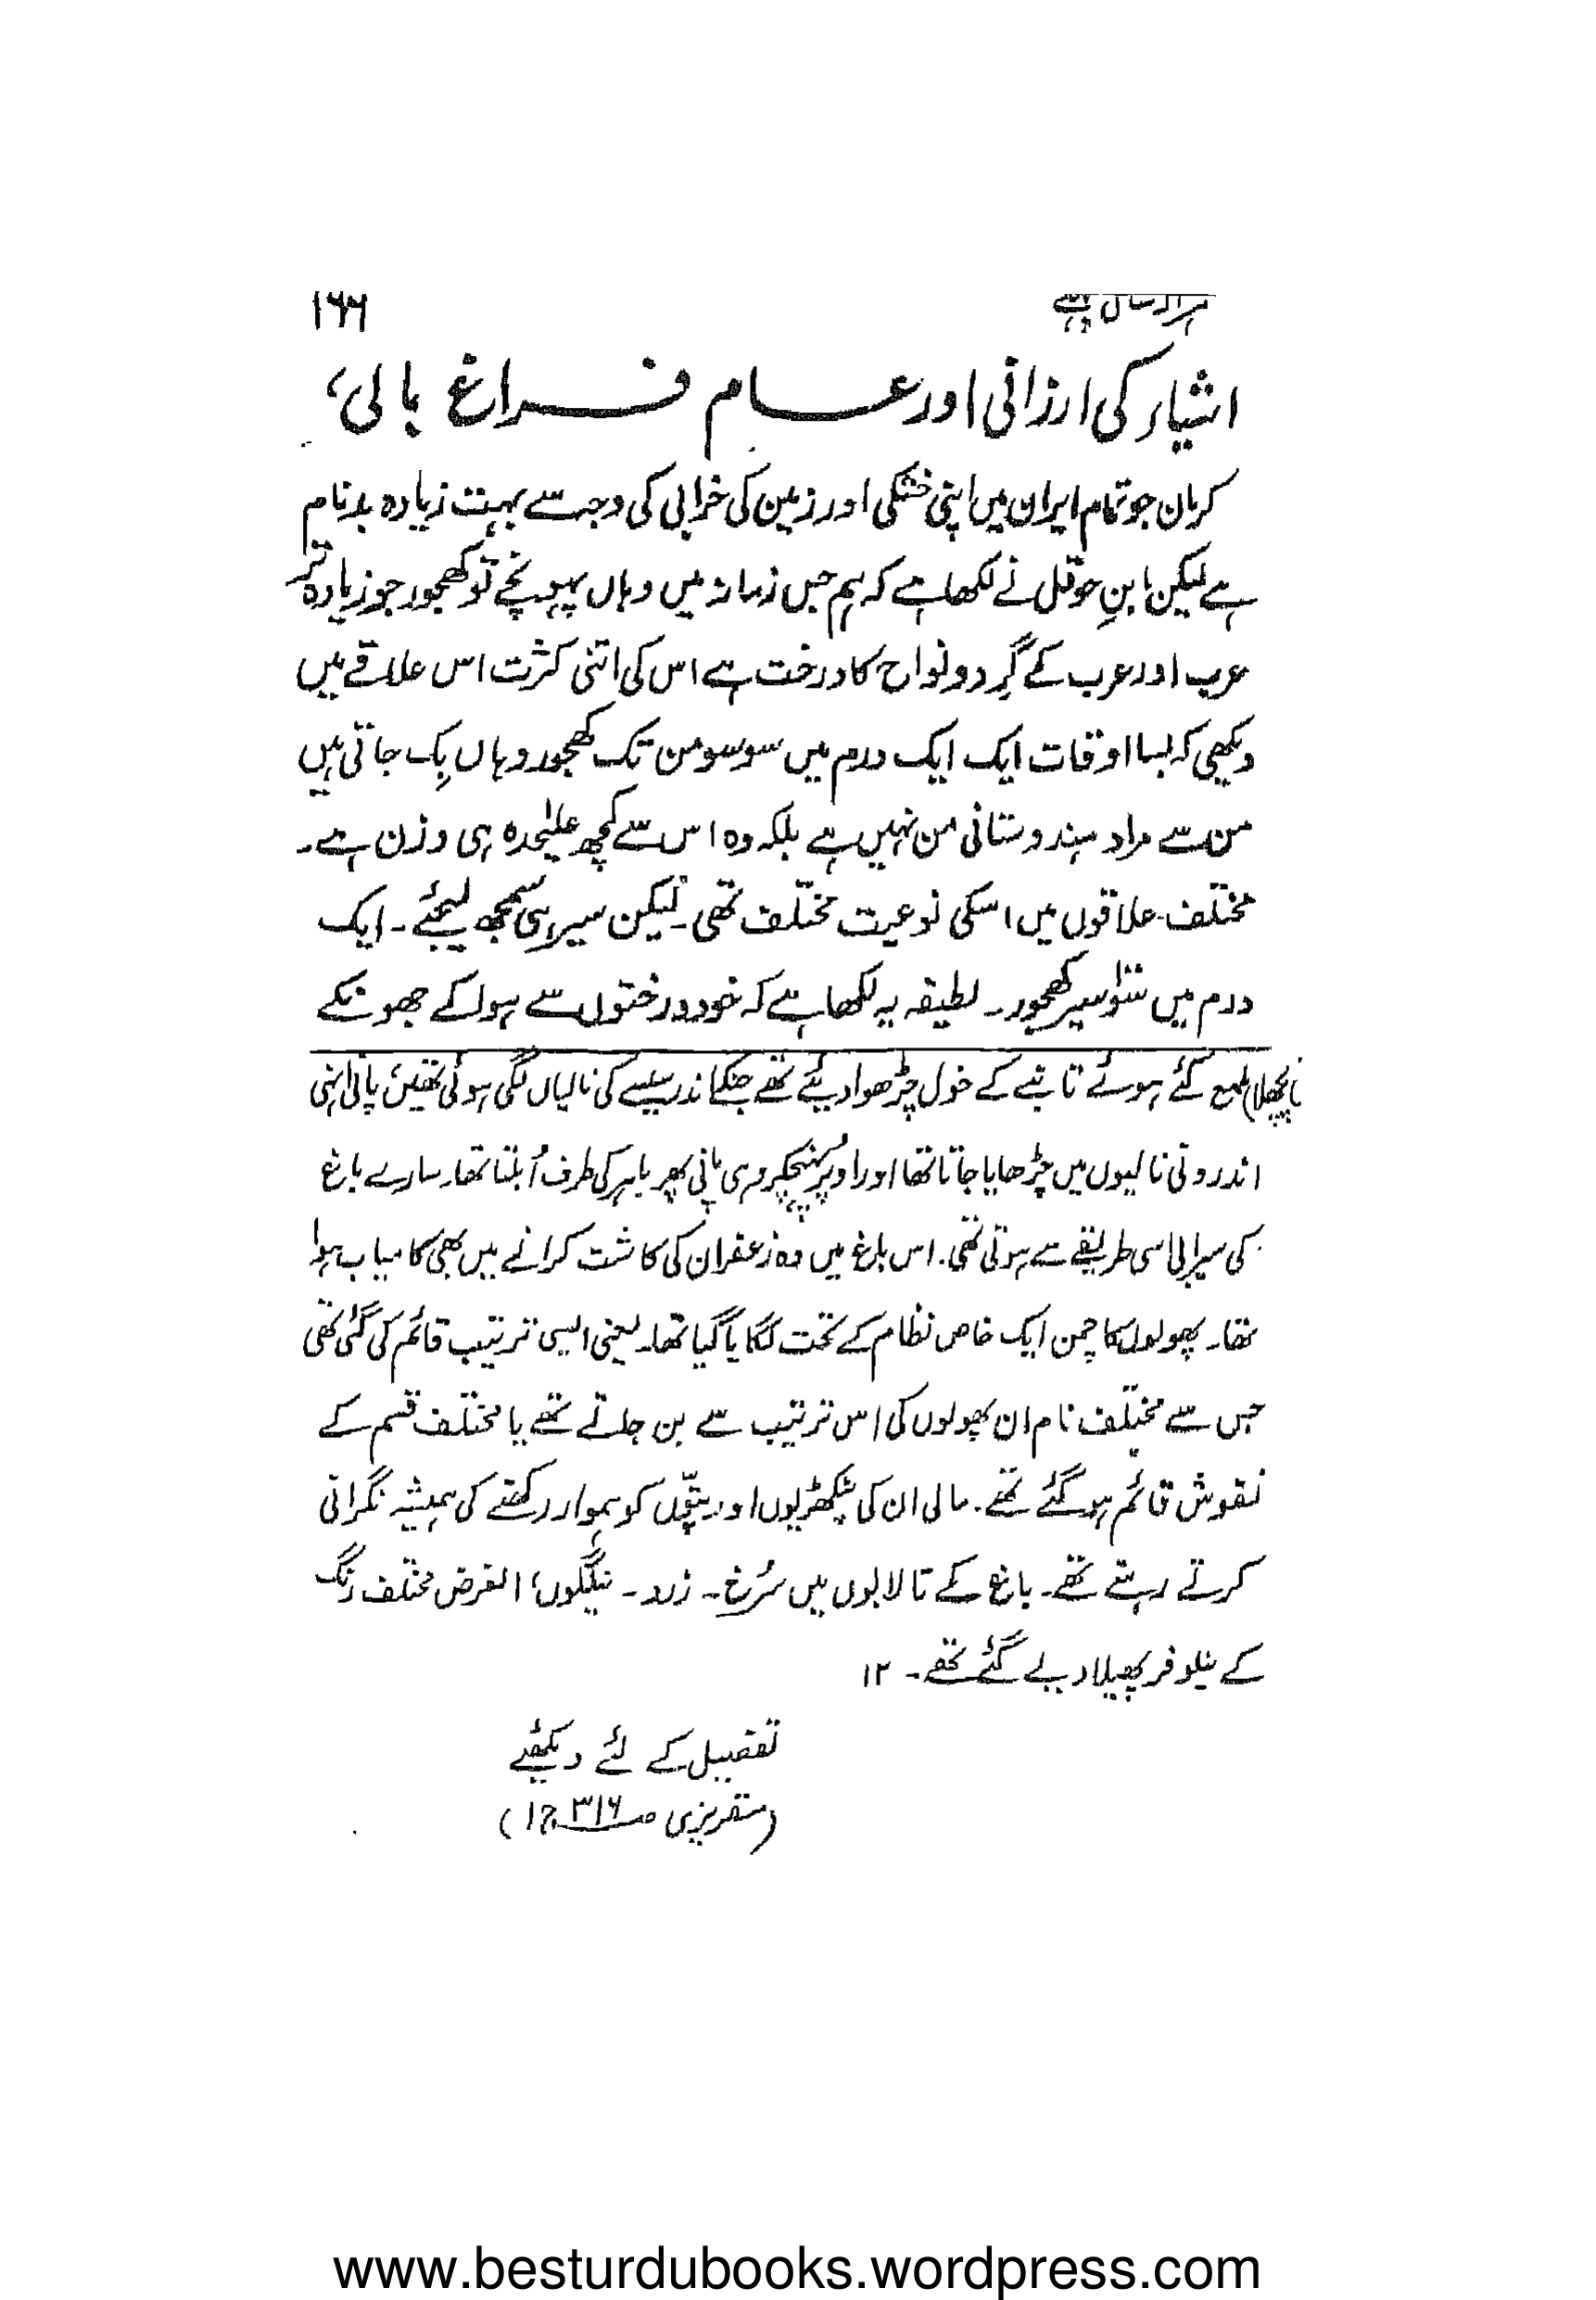 ہزار سال پہلے ۱۶۶
اشیاء کی ارزانی اور عام فراغ بالی،
کرمان جو تمام ایران میں اپنی خشکی اور زمین کی خرابی کی وجہ سے بہت زیادہ بدنام
ہے لیکن ابنِ حوقل نے لکھا ہے کہ ہم جس زمانہ میں وہاں پہونچے تو کھجور جو زیادہ تر
عرب اور عرب کے گِرد و نواح کا درخت ہے اس کی اتنی کثرت اس علاقے میں
دیکھی کہ بسا اوقات ایک ایک درم میں سو سو من تک کھجور وہاں بِک جاتی ہیں
من سے مراد ہندوستانی من نہیں ہے بلکہ وہ اس سے کچھ علیٰحدہ ہی وزن ہے۔
مختلف علاقوں میں اسکی نوعیت مختلف تھی۔ لیکن سیر ہی سمجھ لیجئے۔ ایک
درم میں سَو سیر کھجور۔ لطیفہ یہ لکھا ہے کہ خود درختوں سے ہوا کے جھونکے
ملمع کئے ہوئے تانبے کے خول چڑھوا دیئے تھے جنکے اندر سیسے کی نالیاں لگی ہوئی تھیں، پانی انہی
اندرونی نالیوں میں چڑھایا جاتا تھا اور اوپر پہنچکر وہی پانی پھر باہر کی طرف اُبلتا تھا۔ سارے باغ
کی سیرابی اسی طریقے سے ہوتی تھی۔ اس باغ میں وہ زعفران کی کاشت کرانے میں بھی کامیاب ہوا
تھا۔ پھولوں کا چمن ایک خاص نظام کے تحت لگایا گیا تھا۔ یعنی ایسی ترتیب قائم کی گئی تھی
جس سے مختلف نام ان پھولوں کی اس ترتیب سے بن جاتے تھے یا مختلف قسم کے
نقوش قائم ہو گئے تھے۔ مالی ان کی پنکھڑیوں اور پتّوں کو ہموار رکھنے کی ہمیشہ نگرانی
کرتے رہتے تھے۔ باغ کے تالابوں میں سُرخ۔ زرد۔ نیلگوں، الغرض مختلف رنگ
کے نیلوفر پھیلا دیے گئے تھے۔ ۱۲
تفصیل کے لئے دیکھئے
(مقریزی صـ ۳۱۶ ج ۱)
www.besturdubooks.wordpress.com